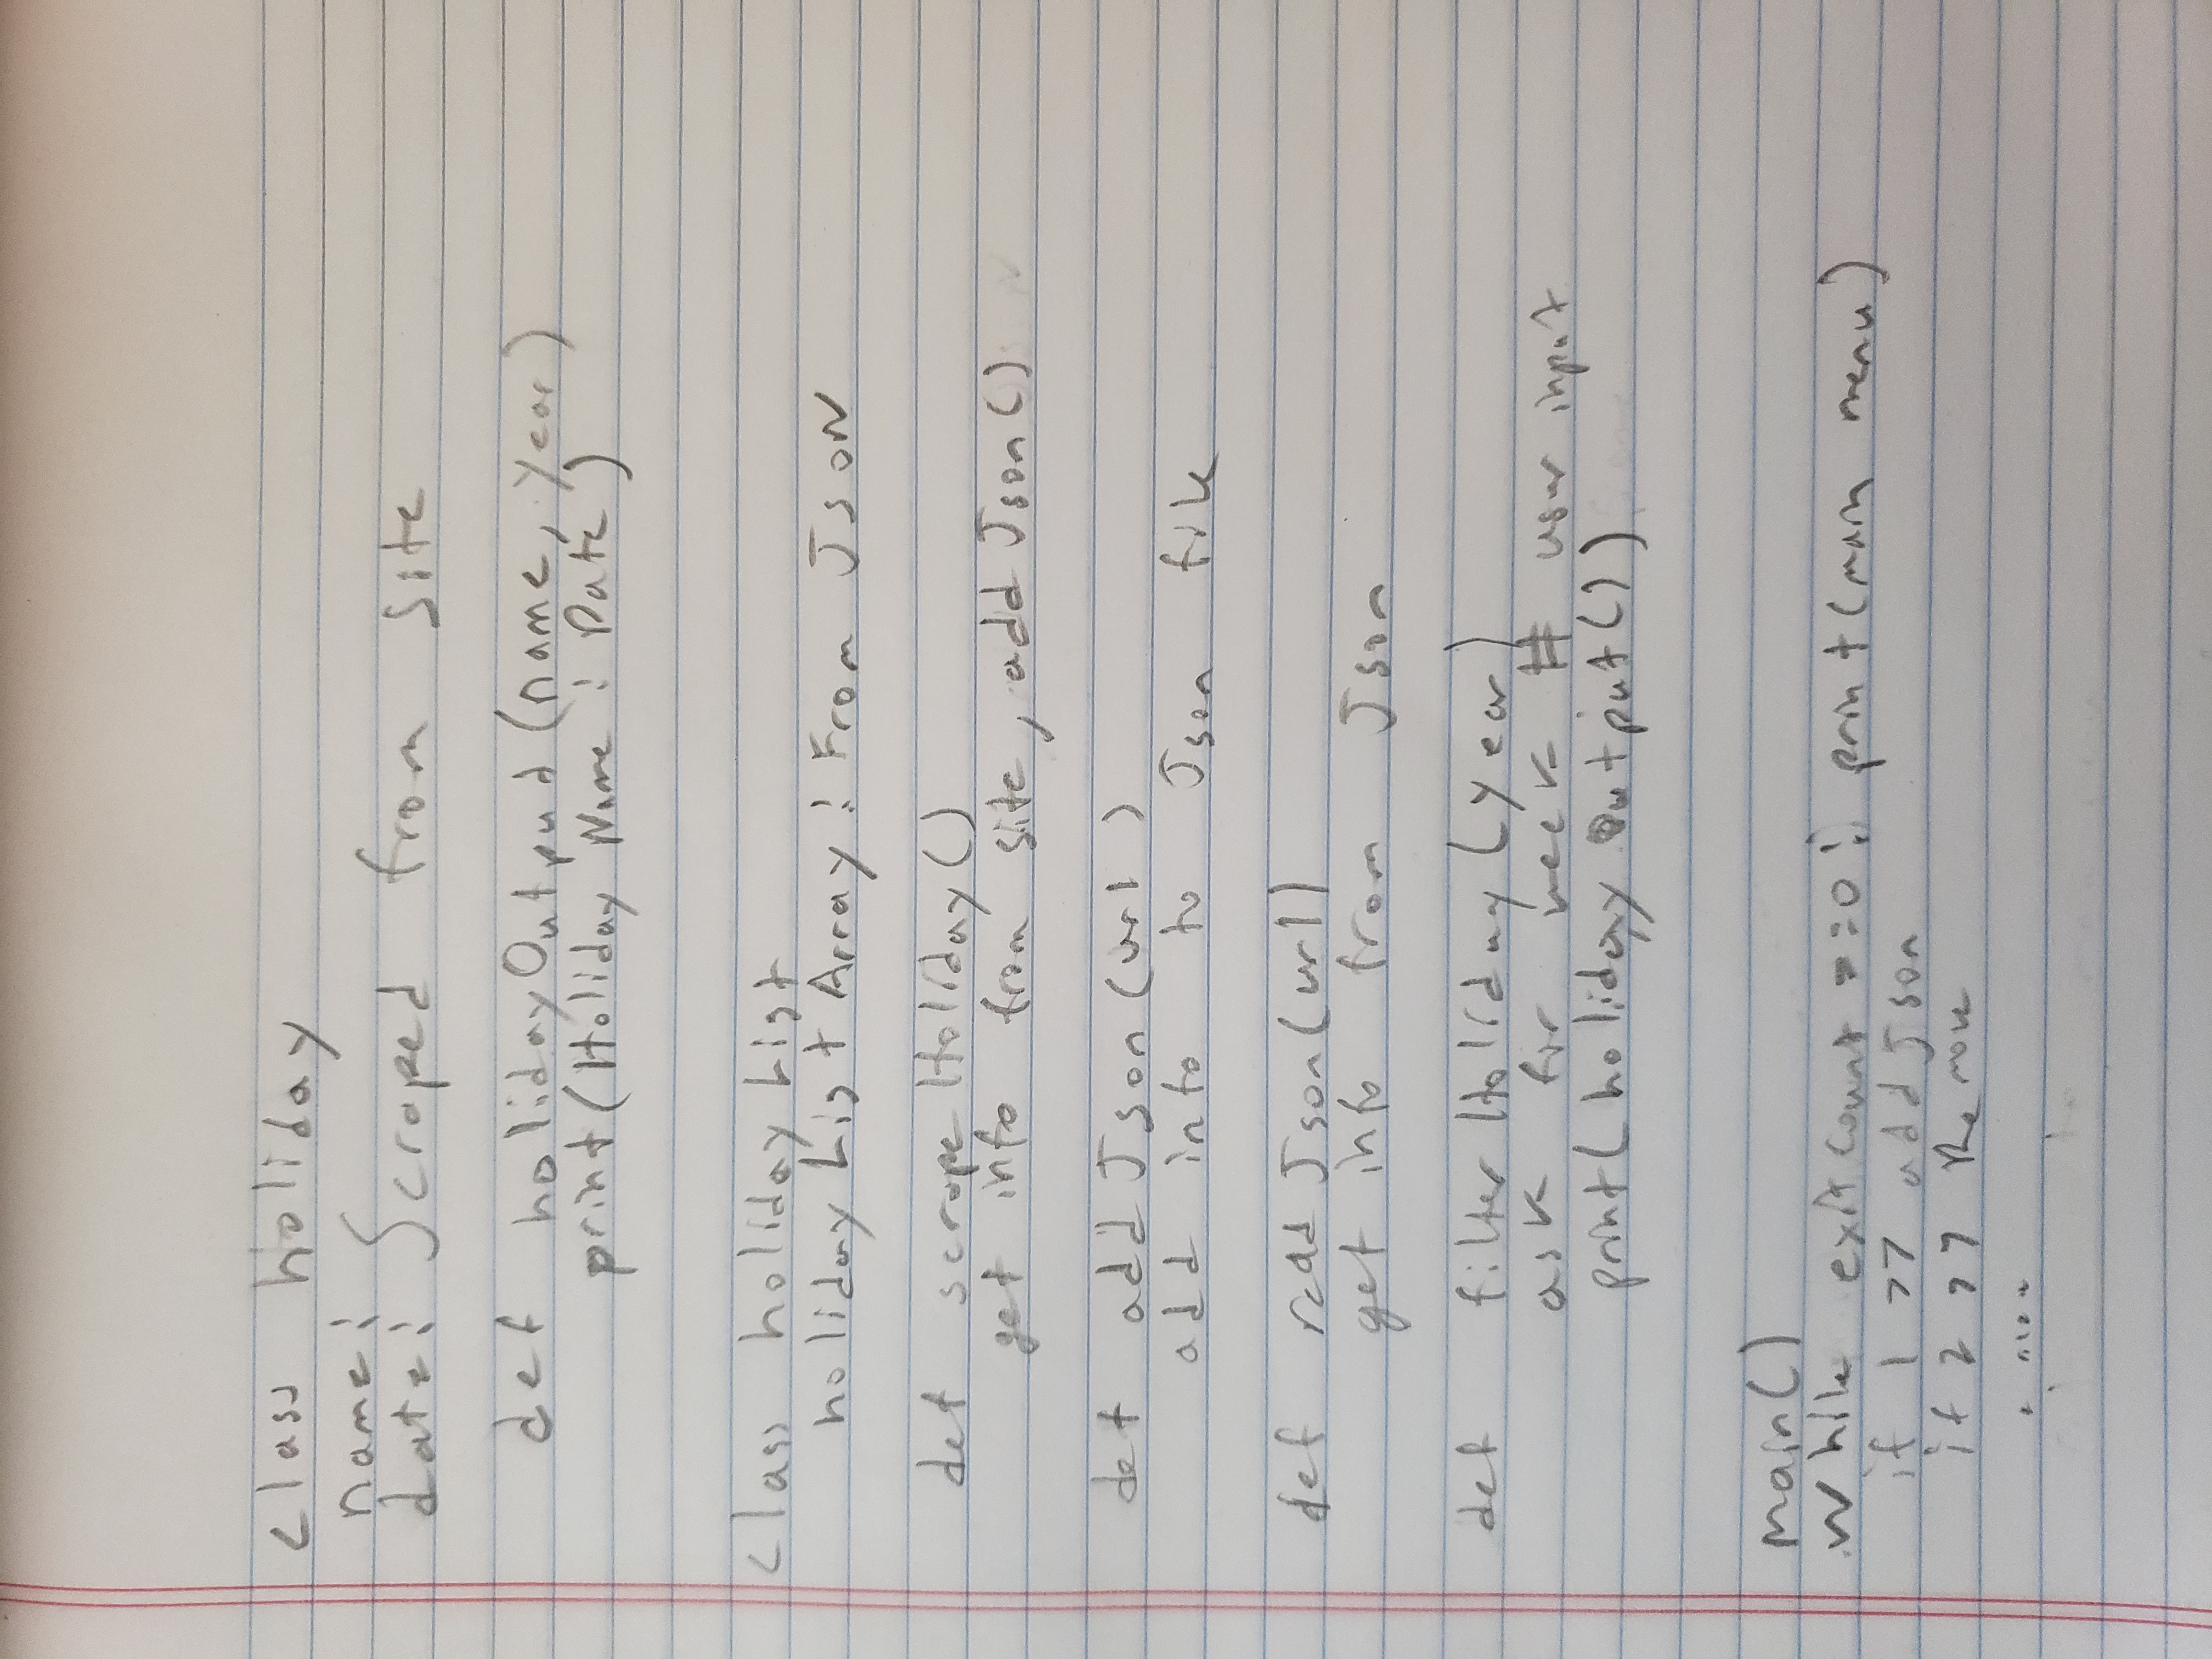 class holiday
name:
date: Scraped from site
def holidayOutput (name, year)
print (Holiday Name : Date)
class holiday List
holiday List Array : From JsoN
def scrape Holiday ()
get info from site, add Json ()
def add Json (url)
add info to Json file
def read Json (url)
get info from Json
def filter Holiday (year)
ask for week # user input
print( holiday Output ())
main()
While exit Count ==0: print (main menu)
if 1 >> add Json
if 2 >> Remove